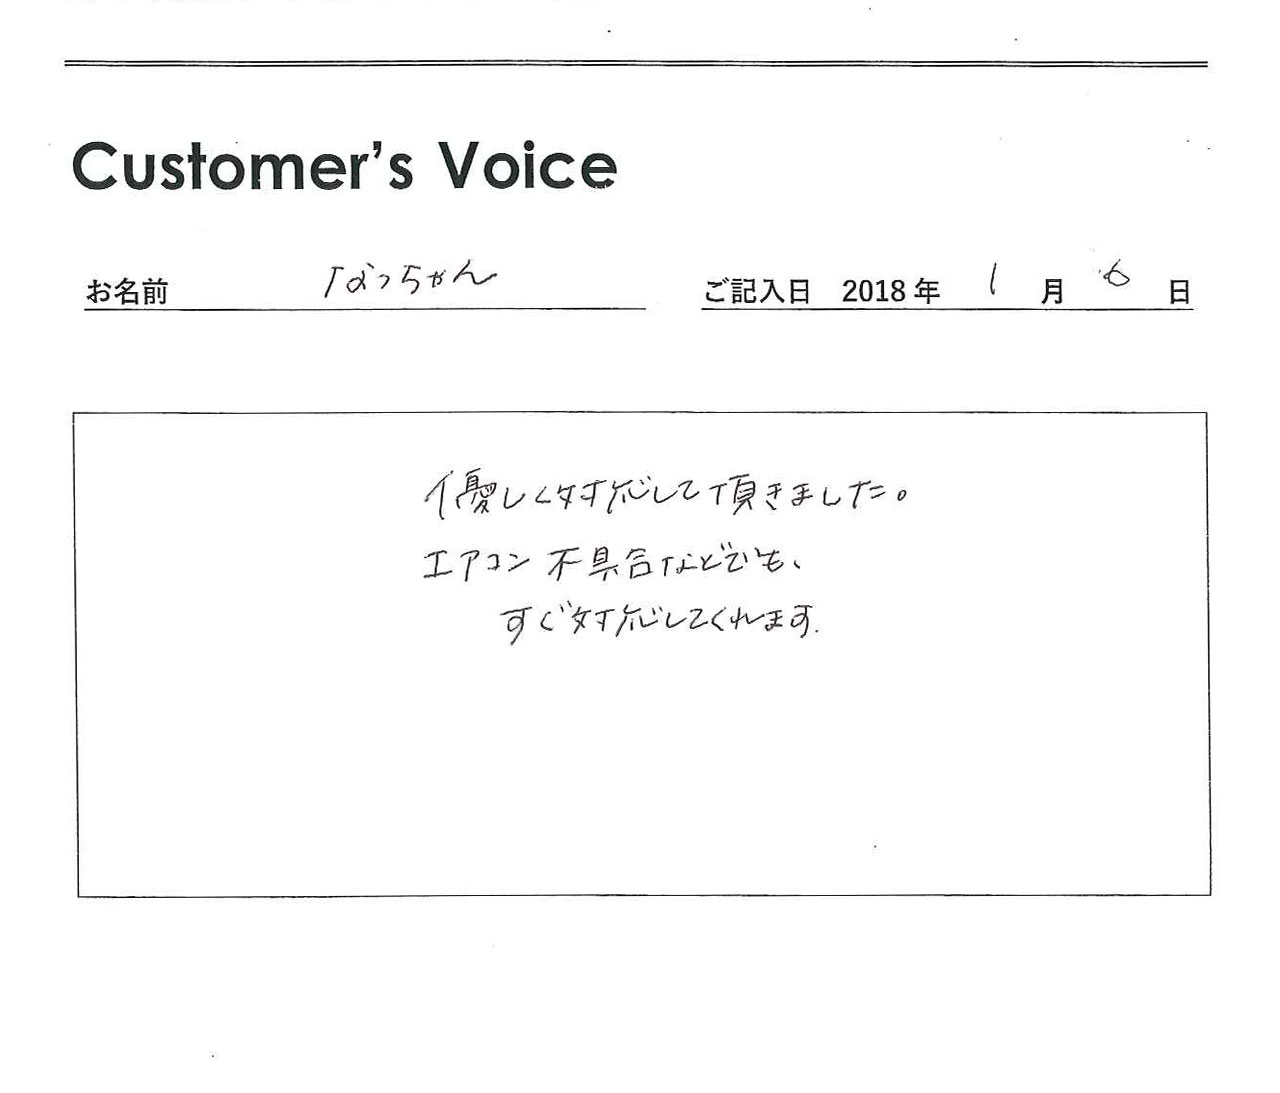 Customer's Voice
お名前 なっちゃん ご記入日 2018年 1月 6日
優しく対応して頂きました。
エアコン不具合などでも、
すぐ対応してくれます.